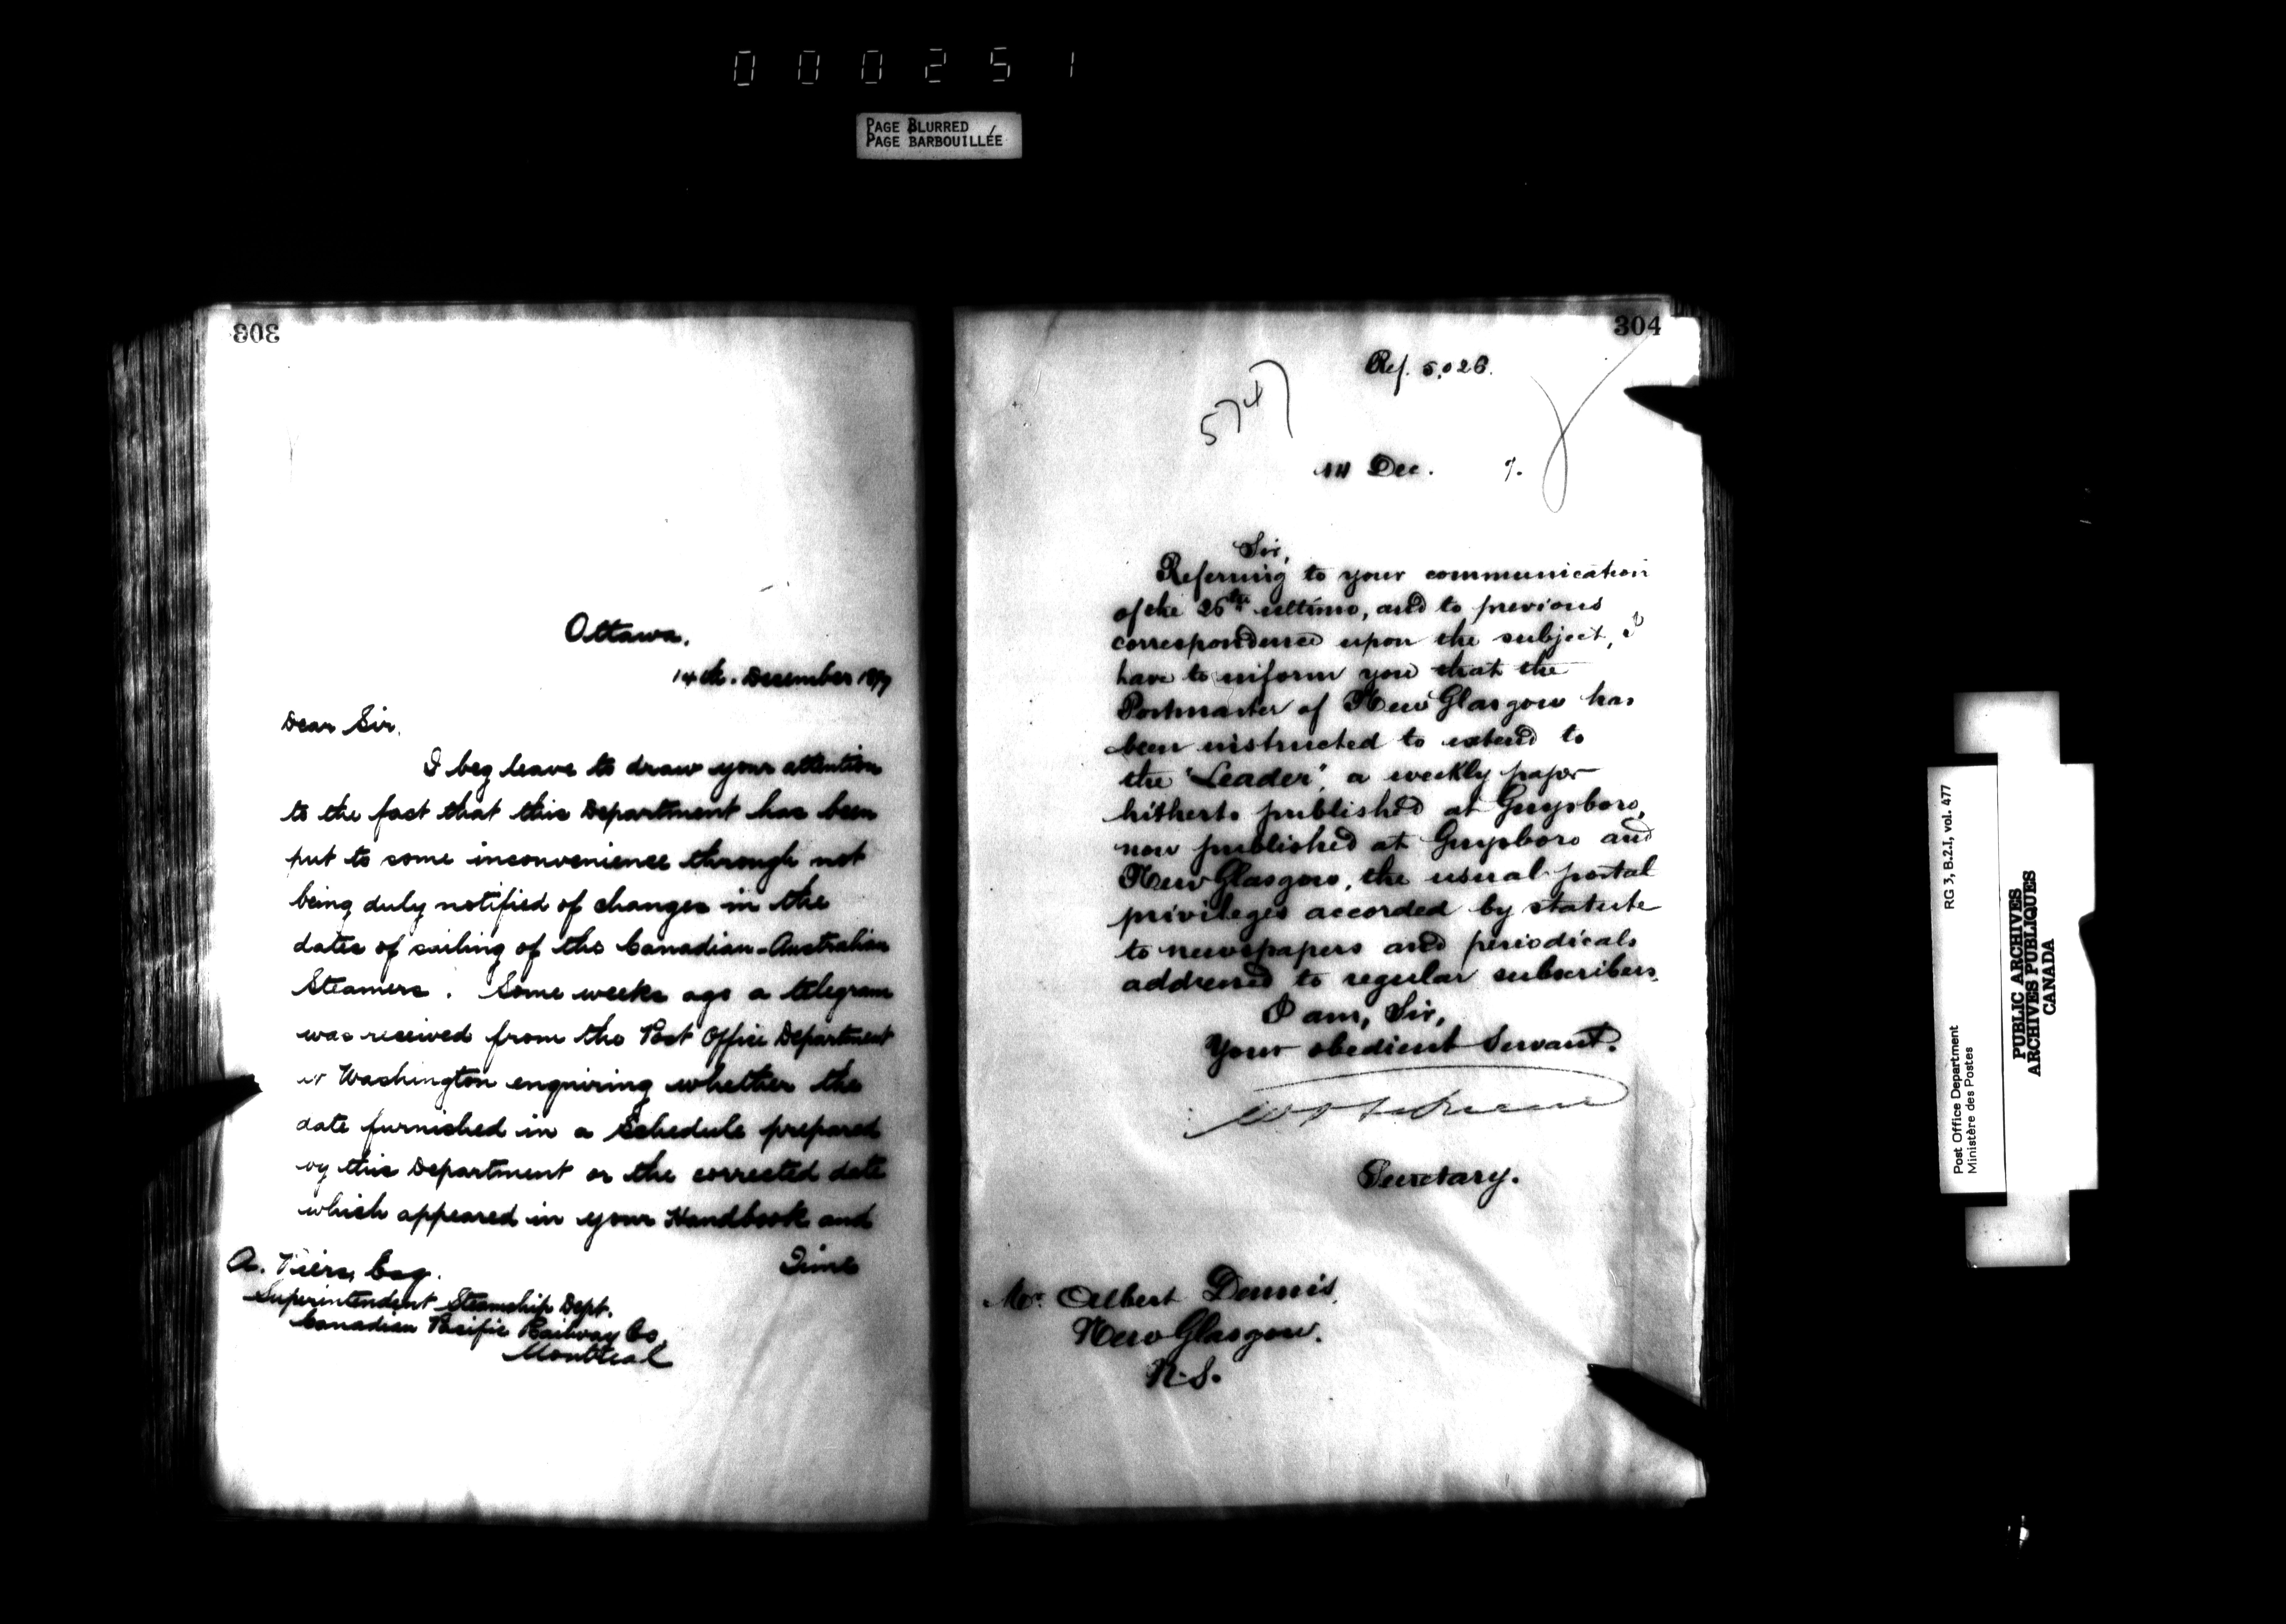 000251
PAGE BLURRED
PAGE BARBOUILLÉE
303
Ottawa.
14th. December 1897
Dear Sir.
I beg leave to draw your attention
to the fact that this Department has been
put to some inconvenience through not
being duly notified of changes in the
dates of sailing of the Canadian-Australian
Steamers. Some weeks ago a telegram
was received from the Post Office Department
at Washington enquiring whether the
date furnished in a Schedule prepared
by this Department or the corrected date
which appeared in your Handbook and
Time
A. Piers, Esq.
Superintendent Steamship Dept.
Canadian Pacific Railway Co.
Montreal
304
Ref. 5,026.
5747
14 Dec. 7.
Sir,
Referring to your communication
of the 26th ultimo, and to previous
correspondence upon the subject, I
have to inform you that the
Postmaster of New Glasgow has
been instructed to extend to
the "Leader", a weekly paper
hitherto published at Guysboro,
now published at Guysboro and
New Glasgow, the usual postal
privileges accorded by statute
to newspapers and periodicals
addressed to regular subscribers.
I am, Sir,
Your obedient Servant.
Secretary.
Mr. Albert Dennis,
New Glasgow.
N.S.
RG 3, B.2.I, vol. 477
Post Office Department
Ministère des Postes
PUBLIC ARCHIVES
ARCHIVES PUBLIQUES
CANADA